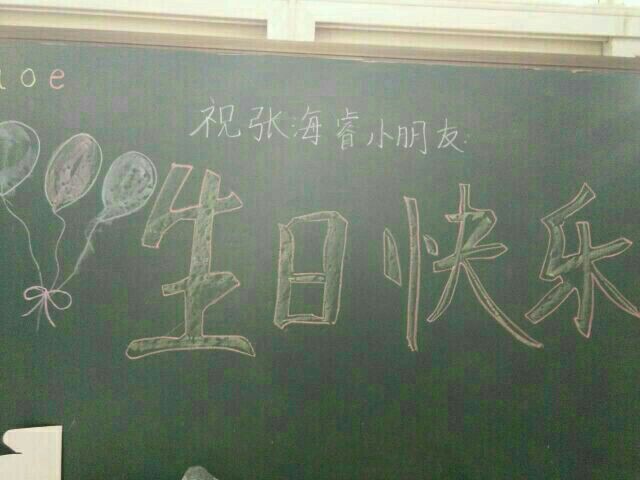 oe
祝张海睿小朋友
生日快乐